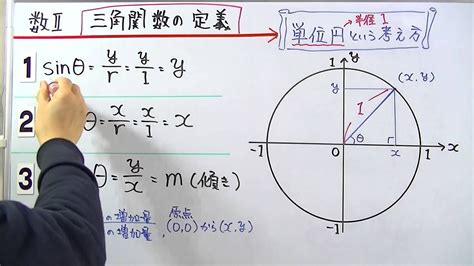 数Ⅱ 三角関数の定義
単位円という考え方
半径 1
1 sinθ = y/r = y/1 = y
2 θ = x/r = x/1 = x
3 θ = y/x = m (傾き)
の増加量
の増加量
原点
(0,0)から(x,y)
y
1
(x,y)
y
1
θ
-1
0
x
1
x
-1